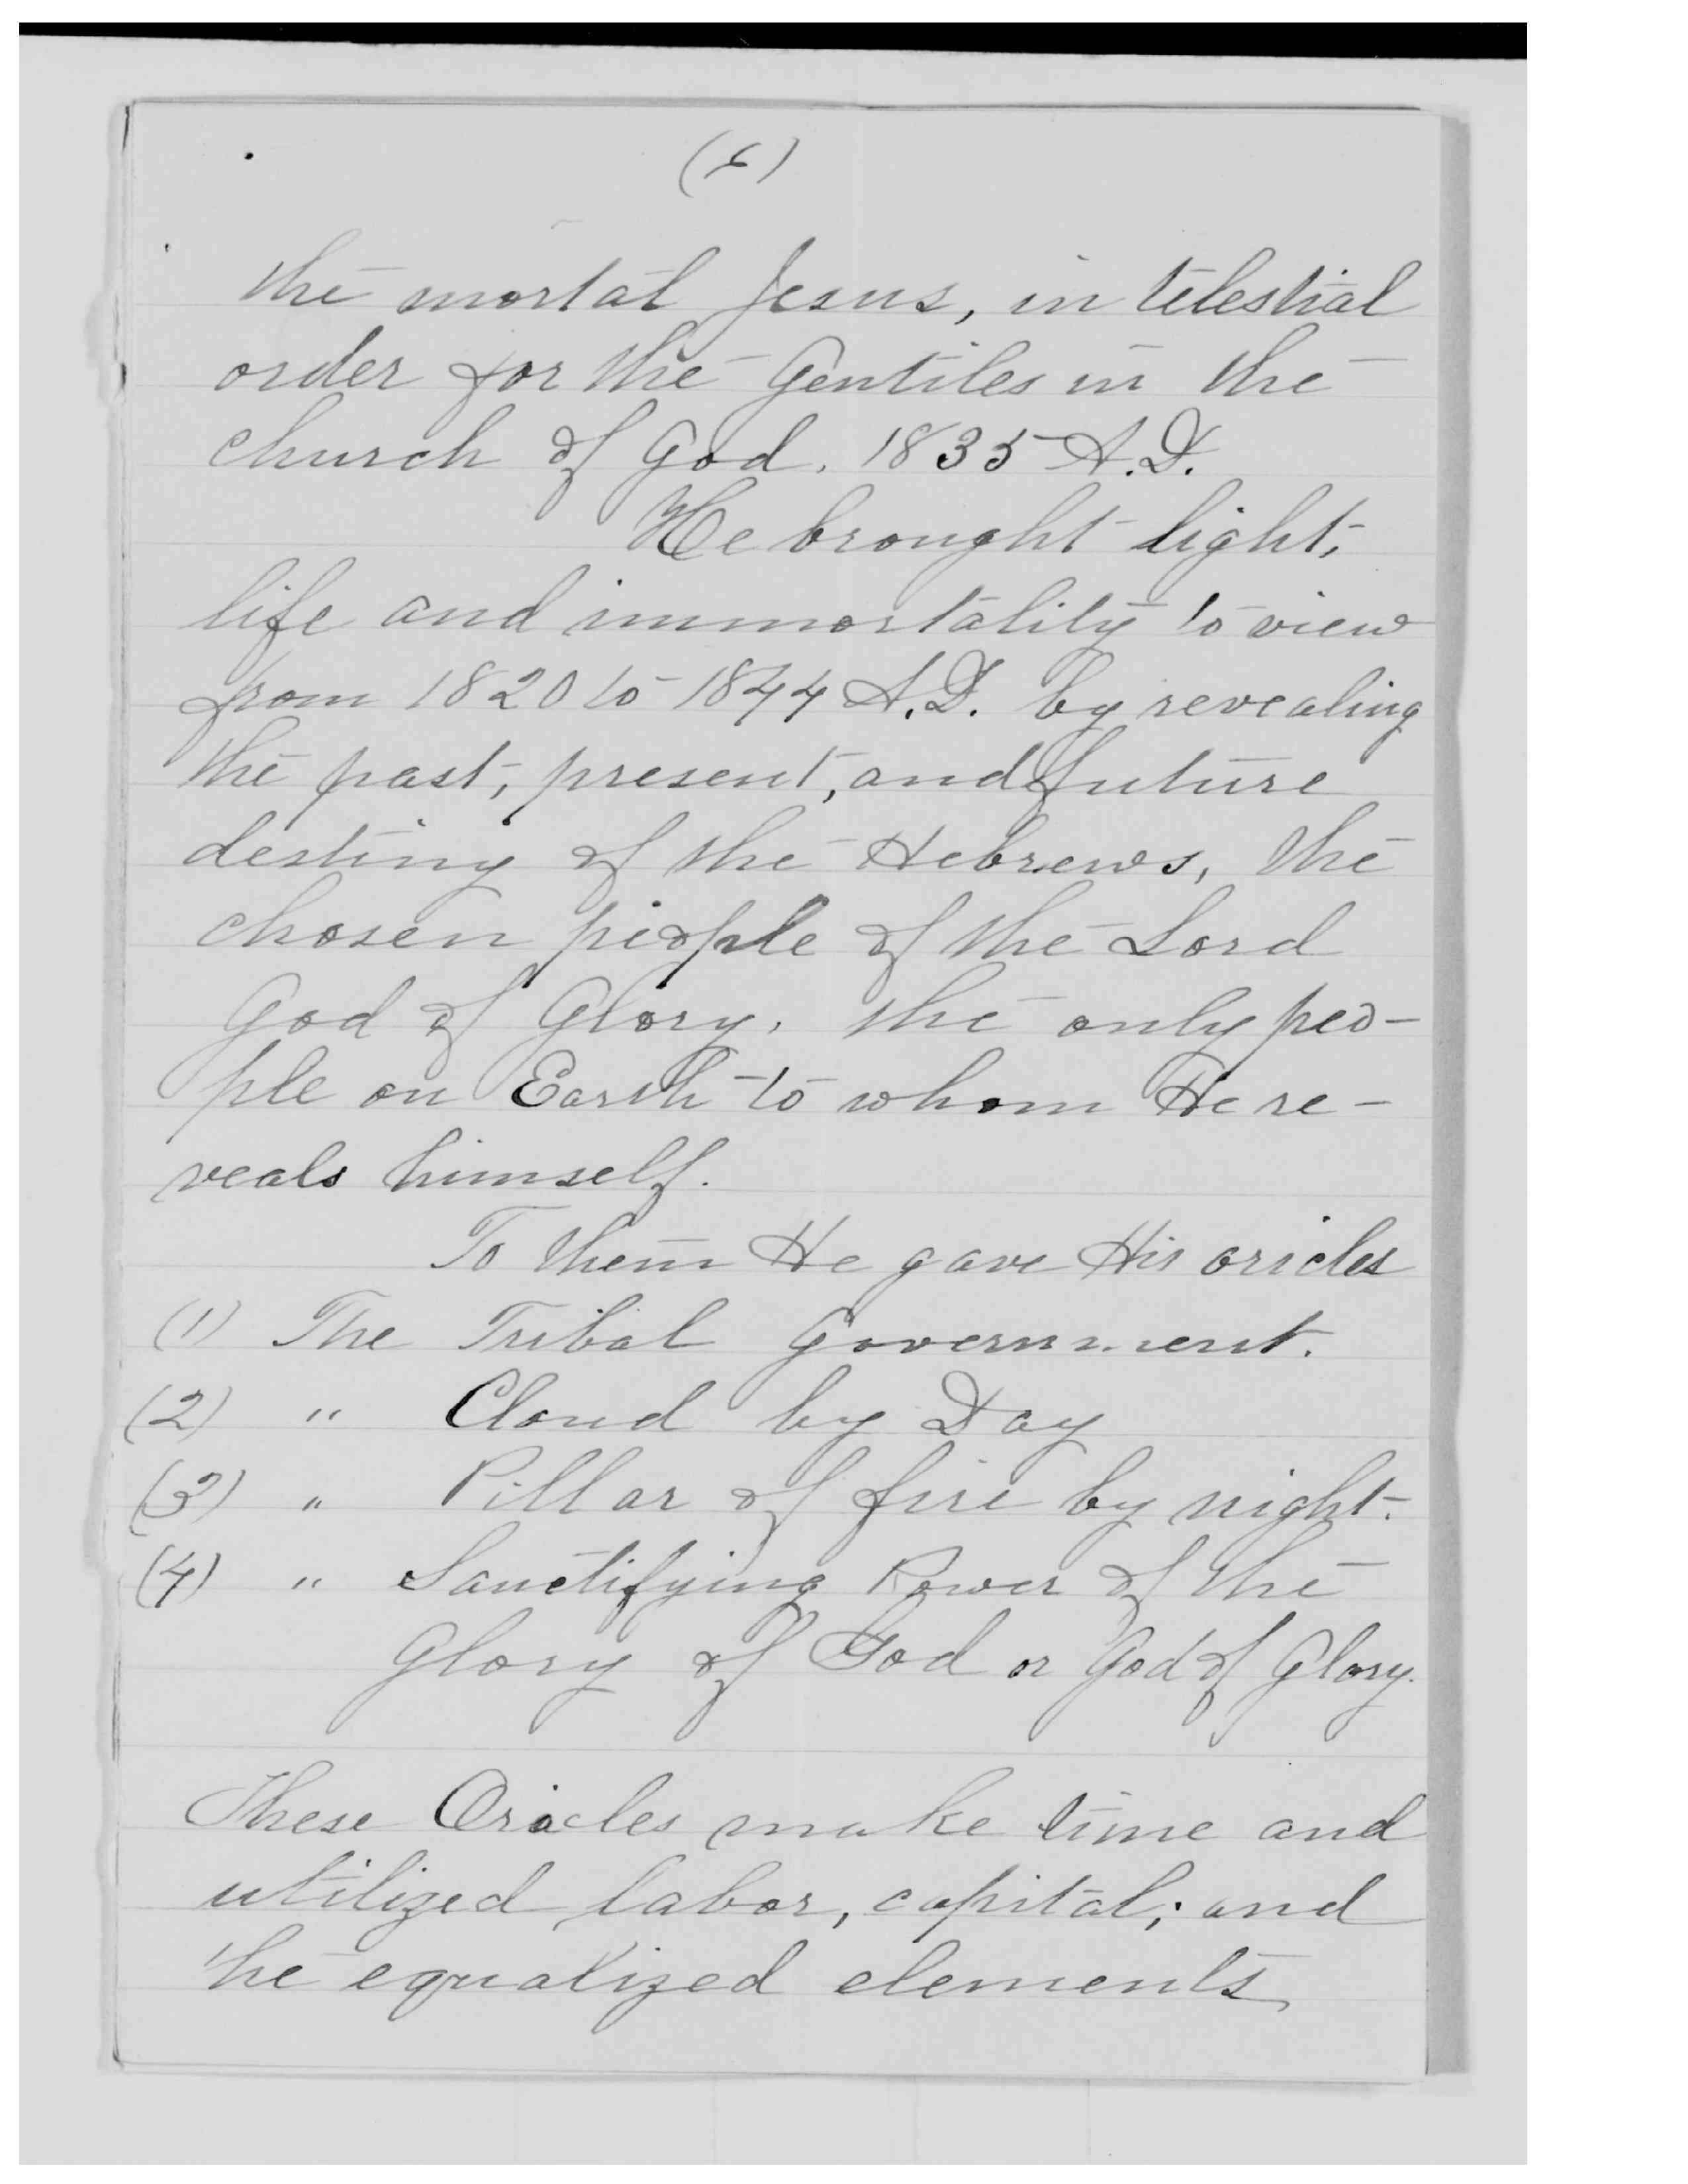 the mortal Jesus, in telestial
order for the Gentiles in the
church of God. 1835 A.D.
He brought light,
life and immortality to view
from 1820 to 1844 A.D. by revealing
the past, present, and future
destiny of the Hebrews, the
chosen people of the Lord
God of Glory. the only peo-
ple on Earth to whom He re-
veals himself.
To them He gave His oricles
(1) The Tribal Government.
(2) " Cloud by Day
(3) " Pillar of fire by night.
(4) " Sanctifying Power of the
Glory of God or God of Glory.
These Oracles make time and
utilized labor, capital; and
the equalized elements